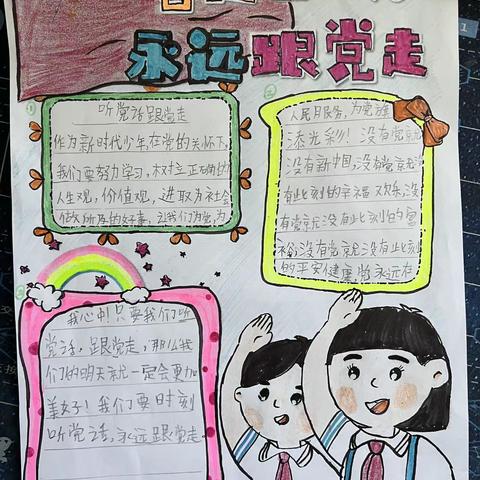 永远跟党走
听党话跟党走
作为新时代少年,在党的关怀下,
我们要努力学习,树立正确的
人生观,价值观,进取为社会
做力所及的好事,让我们为党,为
人民月服务,为党旗
添光彩!没有党就
没有新中国,没有党就没
有此刻的幸福欢乐,没
有党就没有此刻的富
裕,没有党就没有此刻
的平安健康,党永远在
我心中!只要我们听
党话,跟党走,那么我
们的明天就一定会更加
美好!我们要时刻
听党话,永远跟党走.